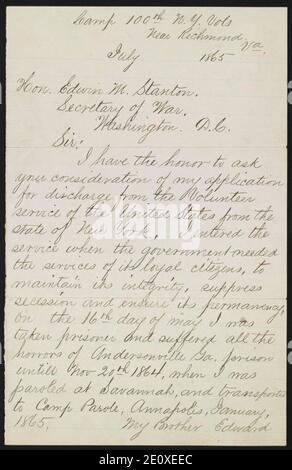 Camp 100th N.Y. Vols
Near Richmond, Va.
July 1865
Hon. Edwin M. Stanton.
Secretary of War.
Washington D.C.
Sir:
I have the honor to ask
your consideration of my application
for discharge from the Volunteer
service of the United States from the
state of New York. I entered the
service when the government needed
the services of its loyal citizens, to
maintain its integrity, suppress
secession and ensure its permanency,
on the 16th day of may I was
taken prisoner and suffered all the
horrors of Andersonville Ga. prison
untill Nov 20th 1864, when I was
paroled at Savannah, and transported
to Camp Parole, Annapolis, January,
1865. My Brother Edward
alamy
Image ID: 2E0XEEC
www.alamy.com